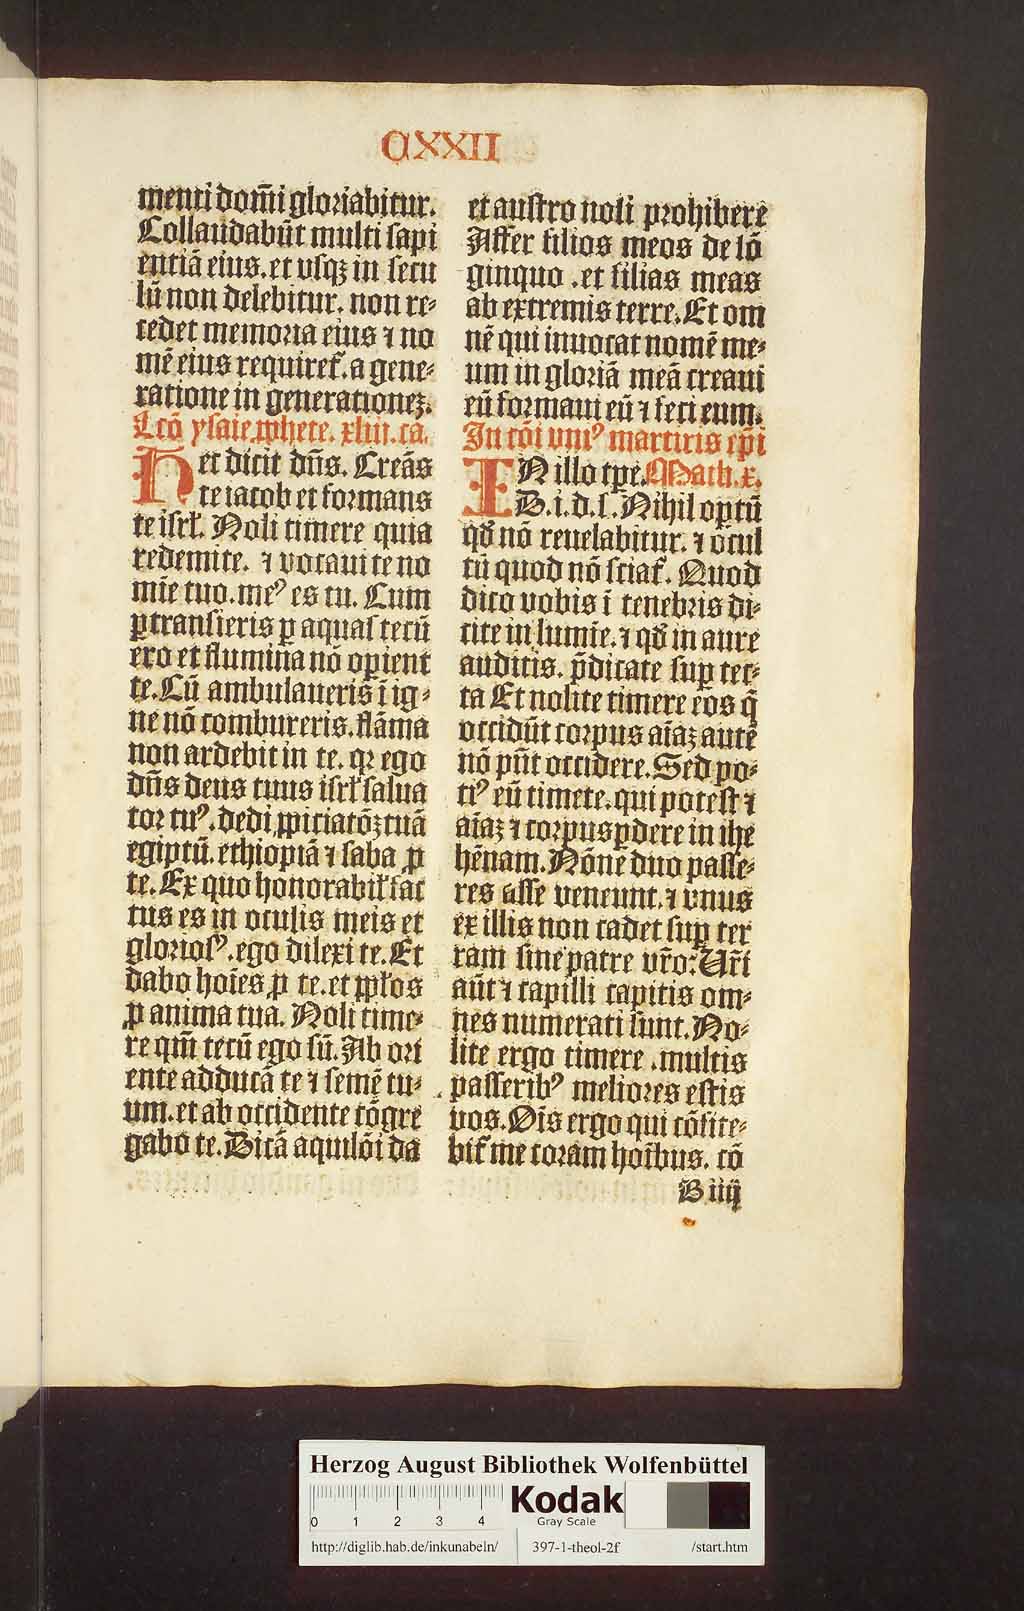 CXXII
menti dom̄i gloriabitur.
Collaudabūt multi sapi
entiā eius. et vsqꝫ in secu
lū non delebitur. non re⸗
cedet memoria eius ⁊ no
mē eius requiret̄. a gene⸗
ratione in generationeꝫ.
Lcō ysaie ꝓphete. xliii. ca.
Hec dicit dn̄s. Creās
te iacob et formans
te isrł. Noli timere quia
redemi te. ⁊ vocaui te no
mīe tuo. meꝰ es tu. Cum
ꝑtransieris ꝑ aquas tecū
ero et flumina nō oꝑient
te. Cū ambulaueris ī ig⸗
ne nō combureris. flāma
non ardebit in te. qr ego
dn̄s deus tuus isrł salua
tor tuꝰ. dedi ꝓpiciatōꝫ tuā
egiptū. ethiopiā ⁊ saba ꝓ
te. Ex quo honorabił fac
tus es in oculis meis et
gloriosꝰ. ego dilexi te. Et
dabo hoīes ꝓ te. et ppłos
ꝓ anima tua. Noli time⸗
re qm̄ tecū ego sū. Ab ori
ente adducā te ⁊ semē tu⸗
um. et ab occidente cōgre
gabo te. Dicā aquilōi da
et austro noli prohibere
Affer filios meos de lō
ginquo . et filias meas
ab extremis terre. Et om
nē qui inuocat nomē me⸗
um in gloriā meā creaui
eū formaui eū ⁊ feci eum.
In cōi vniꝰ martiris ep̄i
IN illo tꝑe. Math. x.
D. i. d. s. Nihil oꝑtū
qd̄ nō reuelabitur. ⁊ ocul
tū quod nō sciat̄. Quod
dico vobis ī tenebris di⸗
cite in lumīe. ⁊ qd̄ in aure
auditis. p̄dicate suꝑ tec⸗
ta Et nolite timere eos q̄
occidūt corpus aīaꝫ autē
nō pn̄t occidere. Sed po⸗
ciꝰ eū timete. qui potest ⁊
aīaꝫ ⁊ corpus ꝑdere in ihe
hēnam. Nōne duo passe⸗
res asse veneunt. ⁊ vnus
ex illis non cadet suꝑ ter
ram sine patre vr̄o. Vr̄i
aūt ⁊ capilli capitis om⸗
nes numerati sunt. No⸗
lite ergo timere . multis
passeribꝰ meliores estis
vos. Oīs ergo qui cōfite⸗
bit̄ me coram hoībus. cō
B iiij
Herzog August Bibliothek Wolfenbüttel
0 1 2 3 4
Kodak
Gray Scale
http://diglib.hab.de/inkunabeln/ 397-1-theol-2f /start.htm